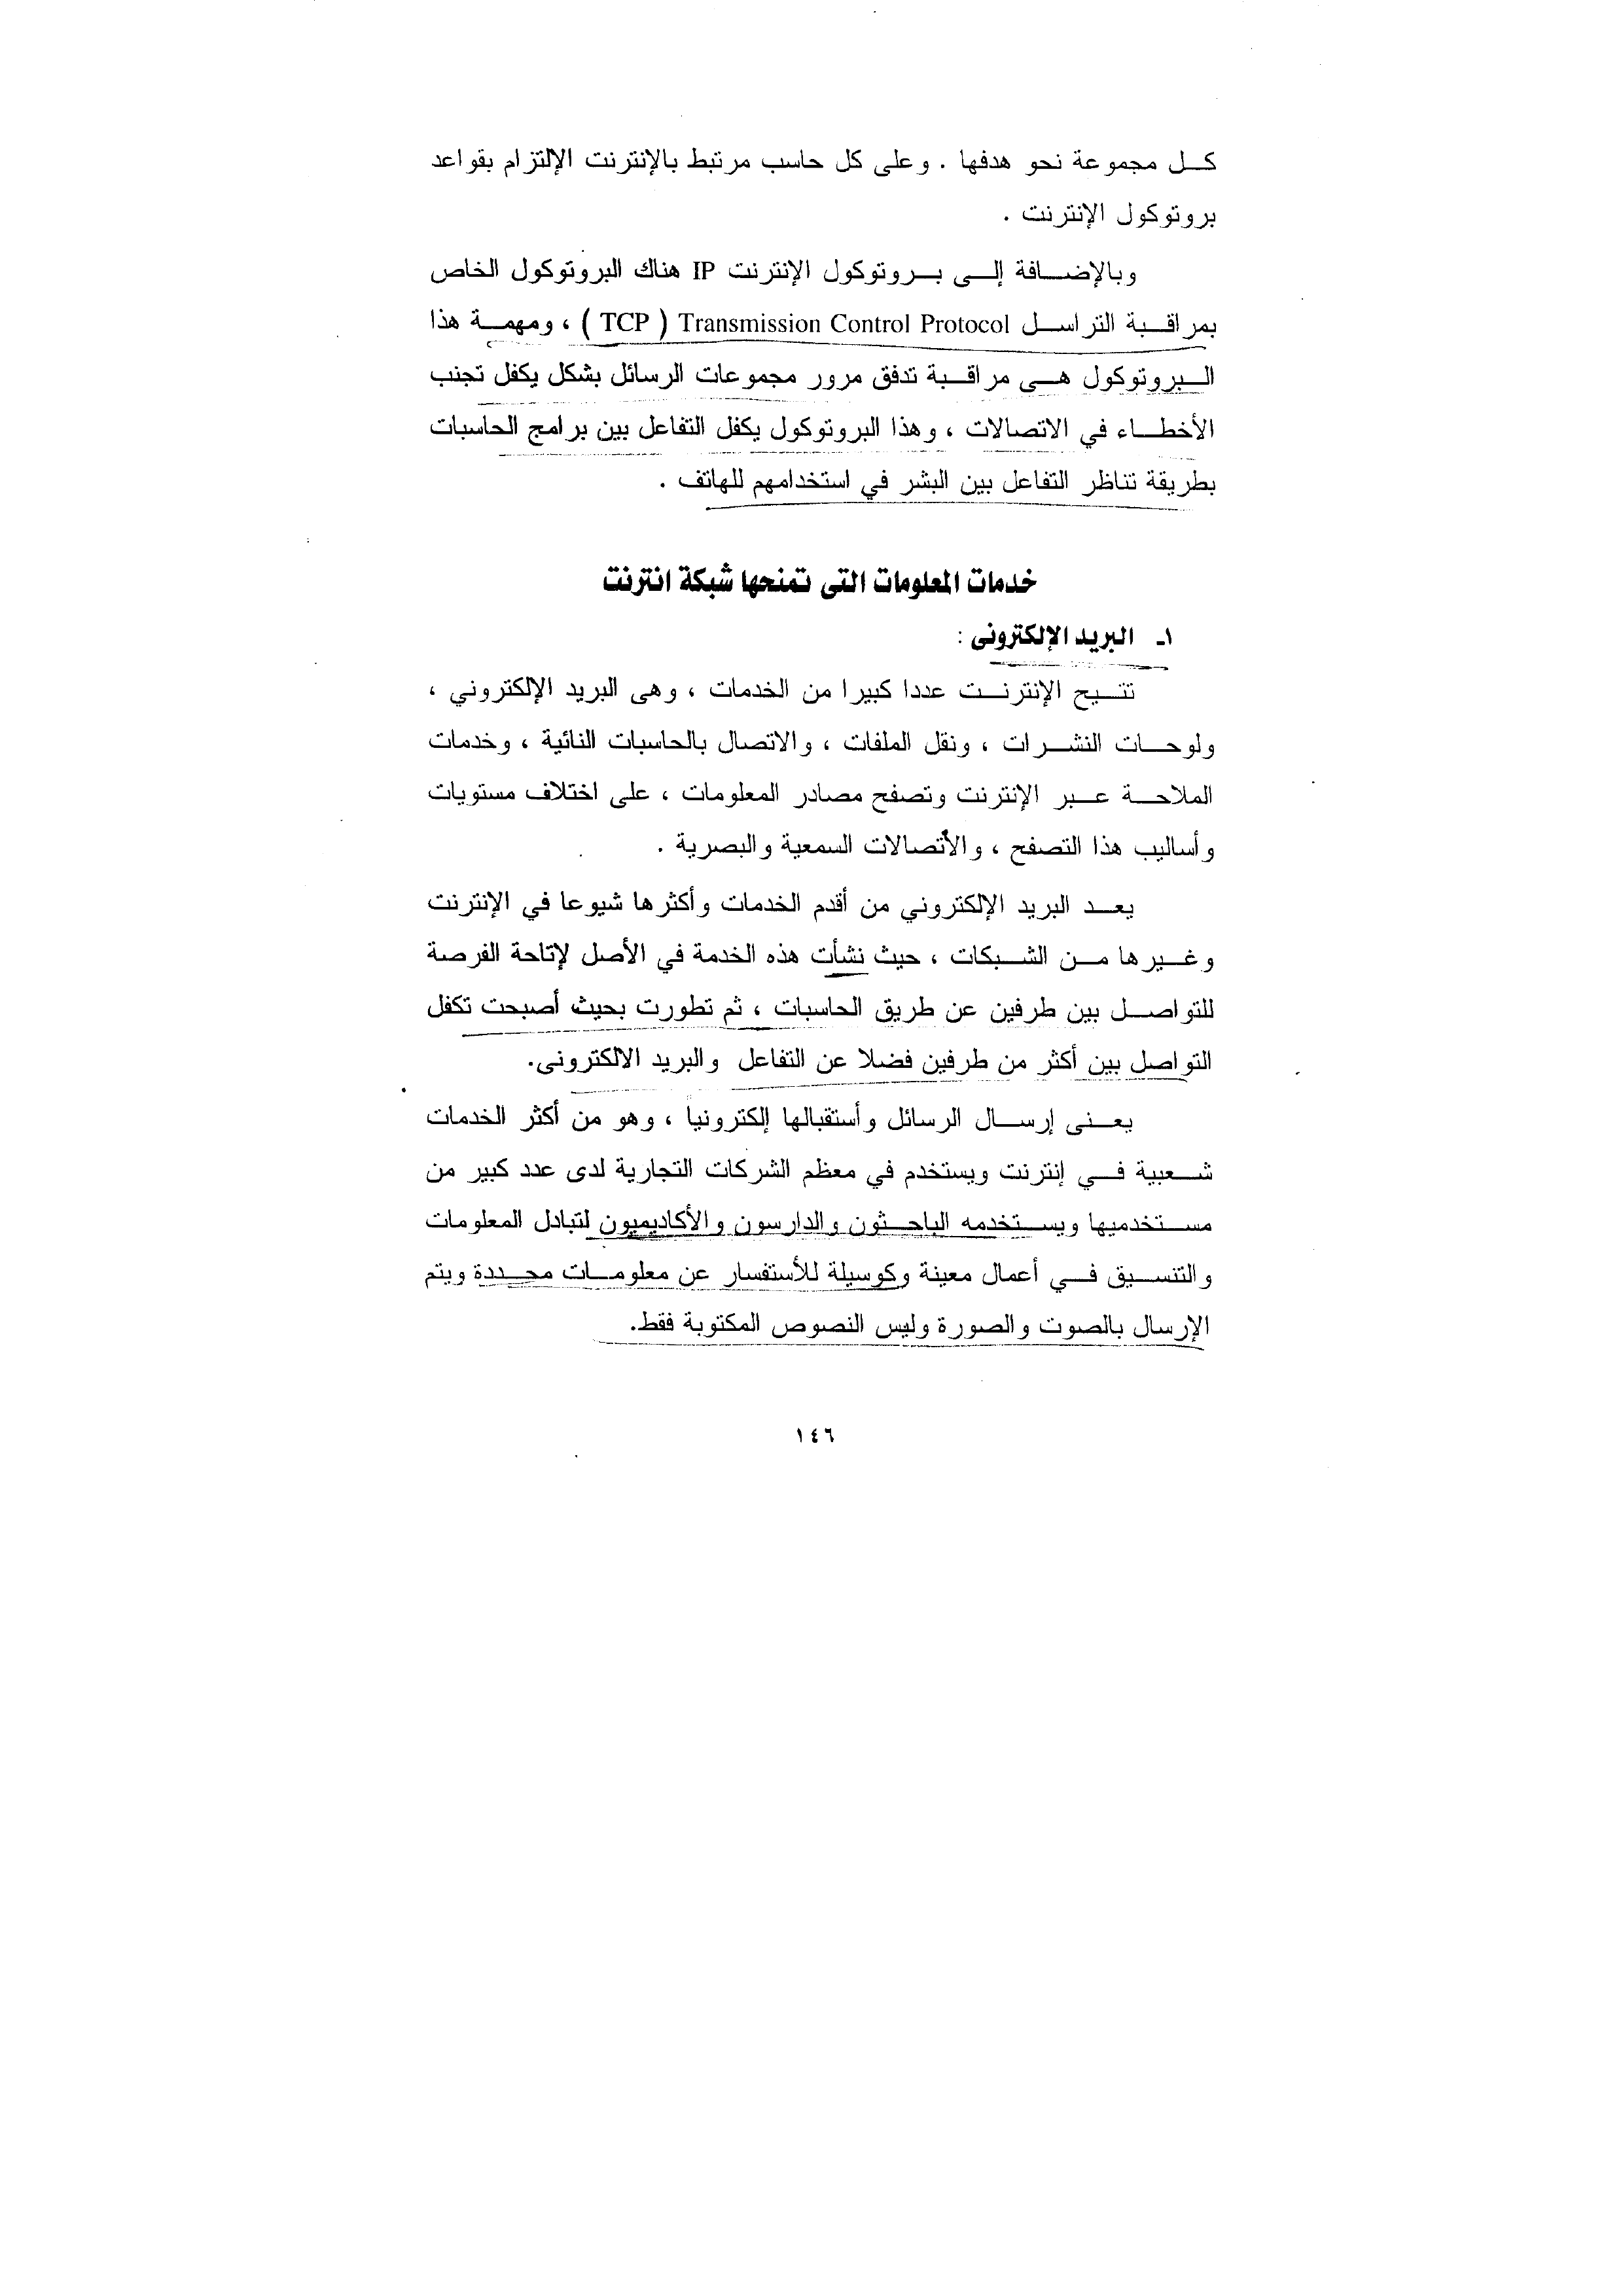 كل مجموعة نحو هدفها . وعلى كل حاسب مرتبط بالإنترنت الإلتزام بقواعد
بروتوكول الإنترنت .
وبالإضافة إلى بروتوكول الإنترنت IP هناك البروتوكول الخاص
بمراقبة التراسل Transmission Control Protocol ( TCP ) ، ومهمة هذا
البروتوكول هى مراقبة تدفق مرور مجموعات الرسائل بشكل يكفل تجنب
الأخطاء في الاتصالات ، وهذا البروتوكول يكفل التفاعل بين برامج الحاسبات
بطريقة تناظر التفاعل بين البشر في استخدامهم للهاتف .
خدمات المعلومات التى تمنحها شبكة انترنت
١ـ البريد الإلكترونى :
تتيح الإنترنت عددا كبيرا من الخدمات ، وهى البريد الإلكتروني ،
ولوحات النشرات ، ونقل الملفات ، والاتصال بالحاسبات النائية ، وخدمات
الملاحة عبر الإنترنت وتصفح مصادر المعلومات ، على اختلاف مستويات
وأساليب هذا التصفح ، والأتصالات السمعية والبصرية .
يعد البريد الإلكتروني من أقدم الخدمات وأكثرها شيوعا في الإنترنت
وغيرها من الشبكات ، حيث نشأت هذه الخدمة في الأصل لإتاحة الفرصة
للتواصل بين طرفين عن طريق الحاسبات ، ثم تطورت بحيث أصبحت تكفل
التواصل بين أكثر من طرفين فضلا عن التفاعل والبريد الالكترونى.
يعنى إرسال الرسائل وأستقبالها إلكترونيا ، وهو من أكثر الخدمات
شعبية في إنترنت ويستخدم في معظم الشركات التجارية لدى عدد كبير من
مستخدميها ويستخدمه الباحثون والدارسون والأكاديميون لتبادل المعلومات
والتنسيق في أعمال معينة وكوسيلة للأستفسار عن معلومات محددة ويتم
الإرسال بالصوت والصورة وليس النصوص المكتوبة فقط.
١٤٦